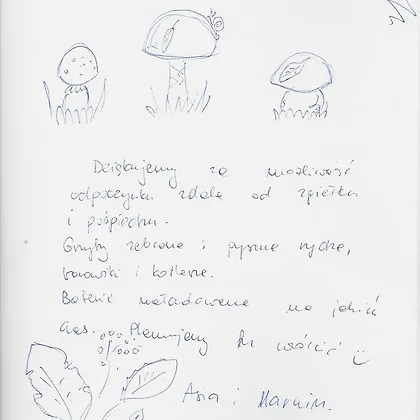 Dziękujemy za możliwość
odpoczynku z dala od zgiełku
i pośpiechu.
Grzyby zebrane i pyszne rydze,
borowiki i kotlesne.
Baterie naładowane na jakiś
czas. Planujemy tu wrócić
Asia i Marcin.